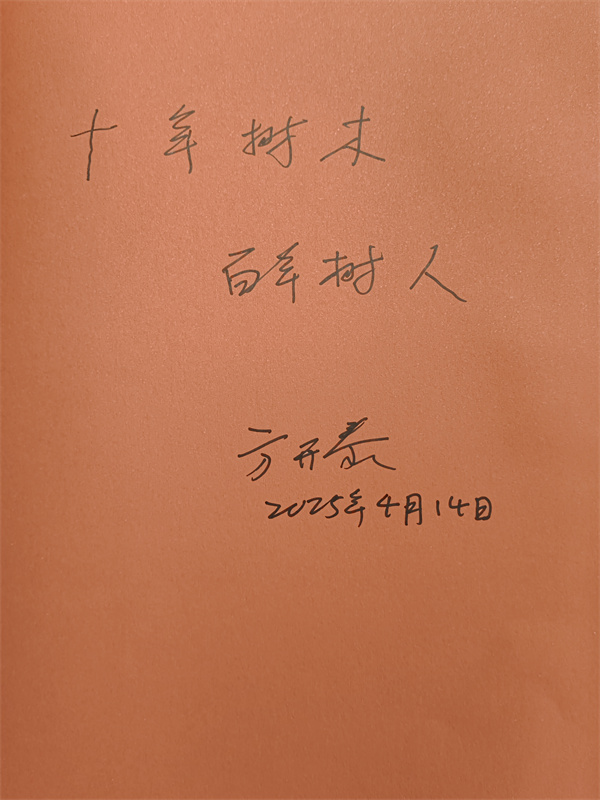 十年树木
百年树人
方开泰
2025年4月14日